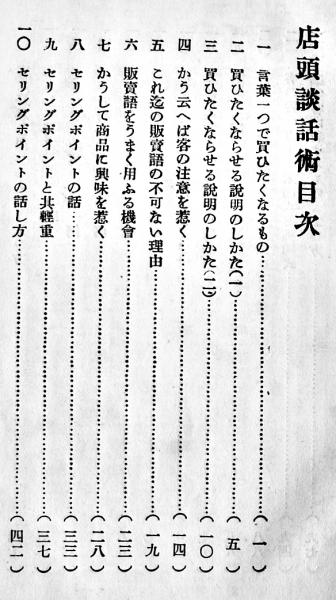 店頭談話術目次
一 言葉一つで買ひたくなるもの……………………(一)
二 買ひたくならせる說明のしかた(一)……………………(五)
三 買ひたくならせる說明のしかた(二)……………………(一〇)
四 かう云へば客の注意を惹く……………………(一四)
五 これ迄の販賣語の不可ない理由……………………(一九)
六 販賣語をうまく用ふる機會……………………(二三)
七 かうして商品に興味を惹く……………………(二八)
八 セリングポイントの話……………………(三三)
九 セリングポイントと其輕重……………………(三七)
一〇 セリングポイントの話し方……………………(四二)